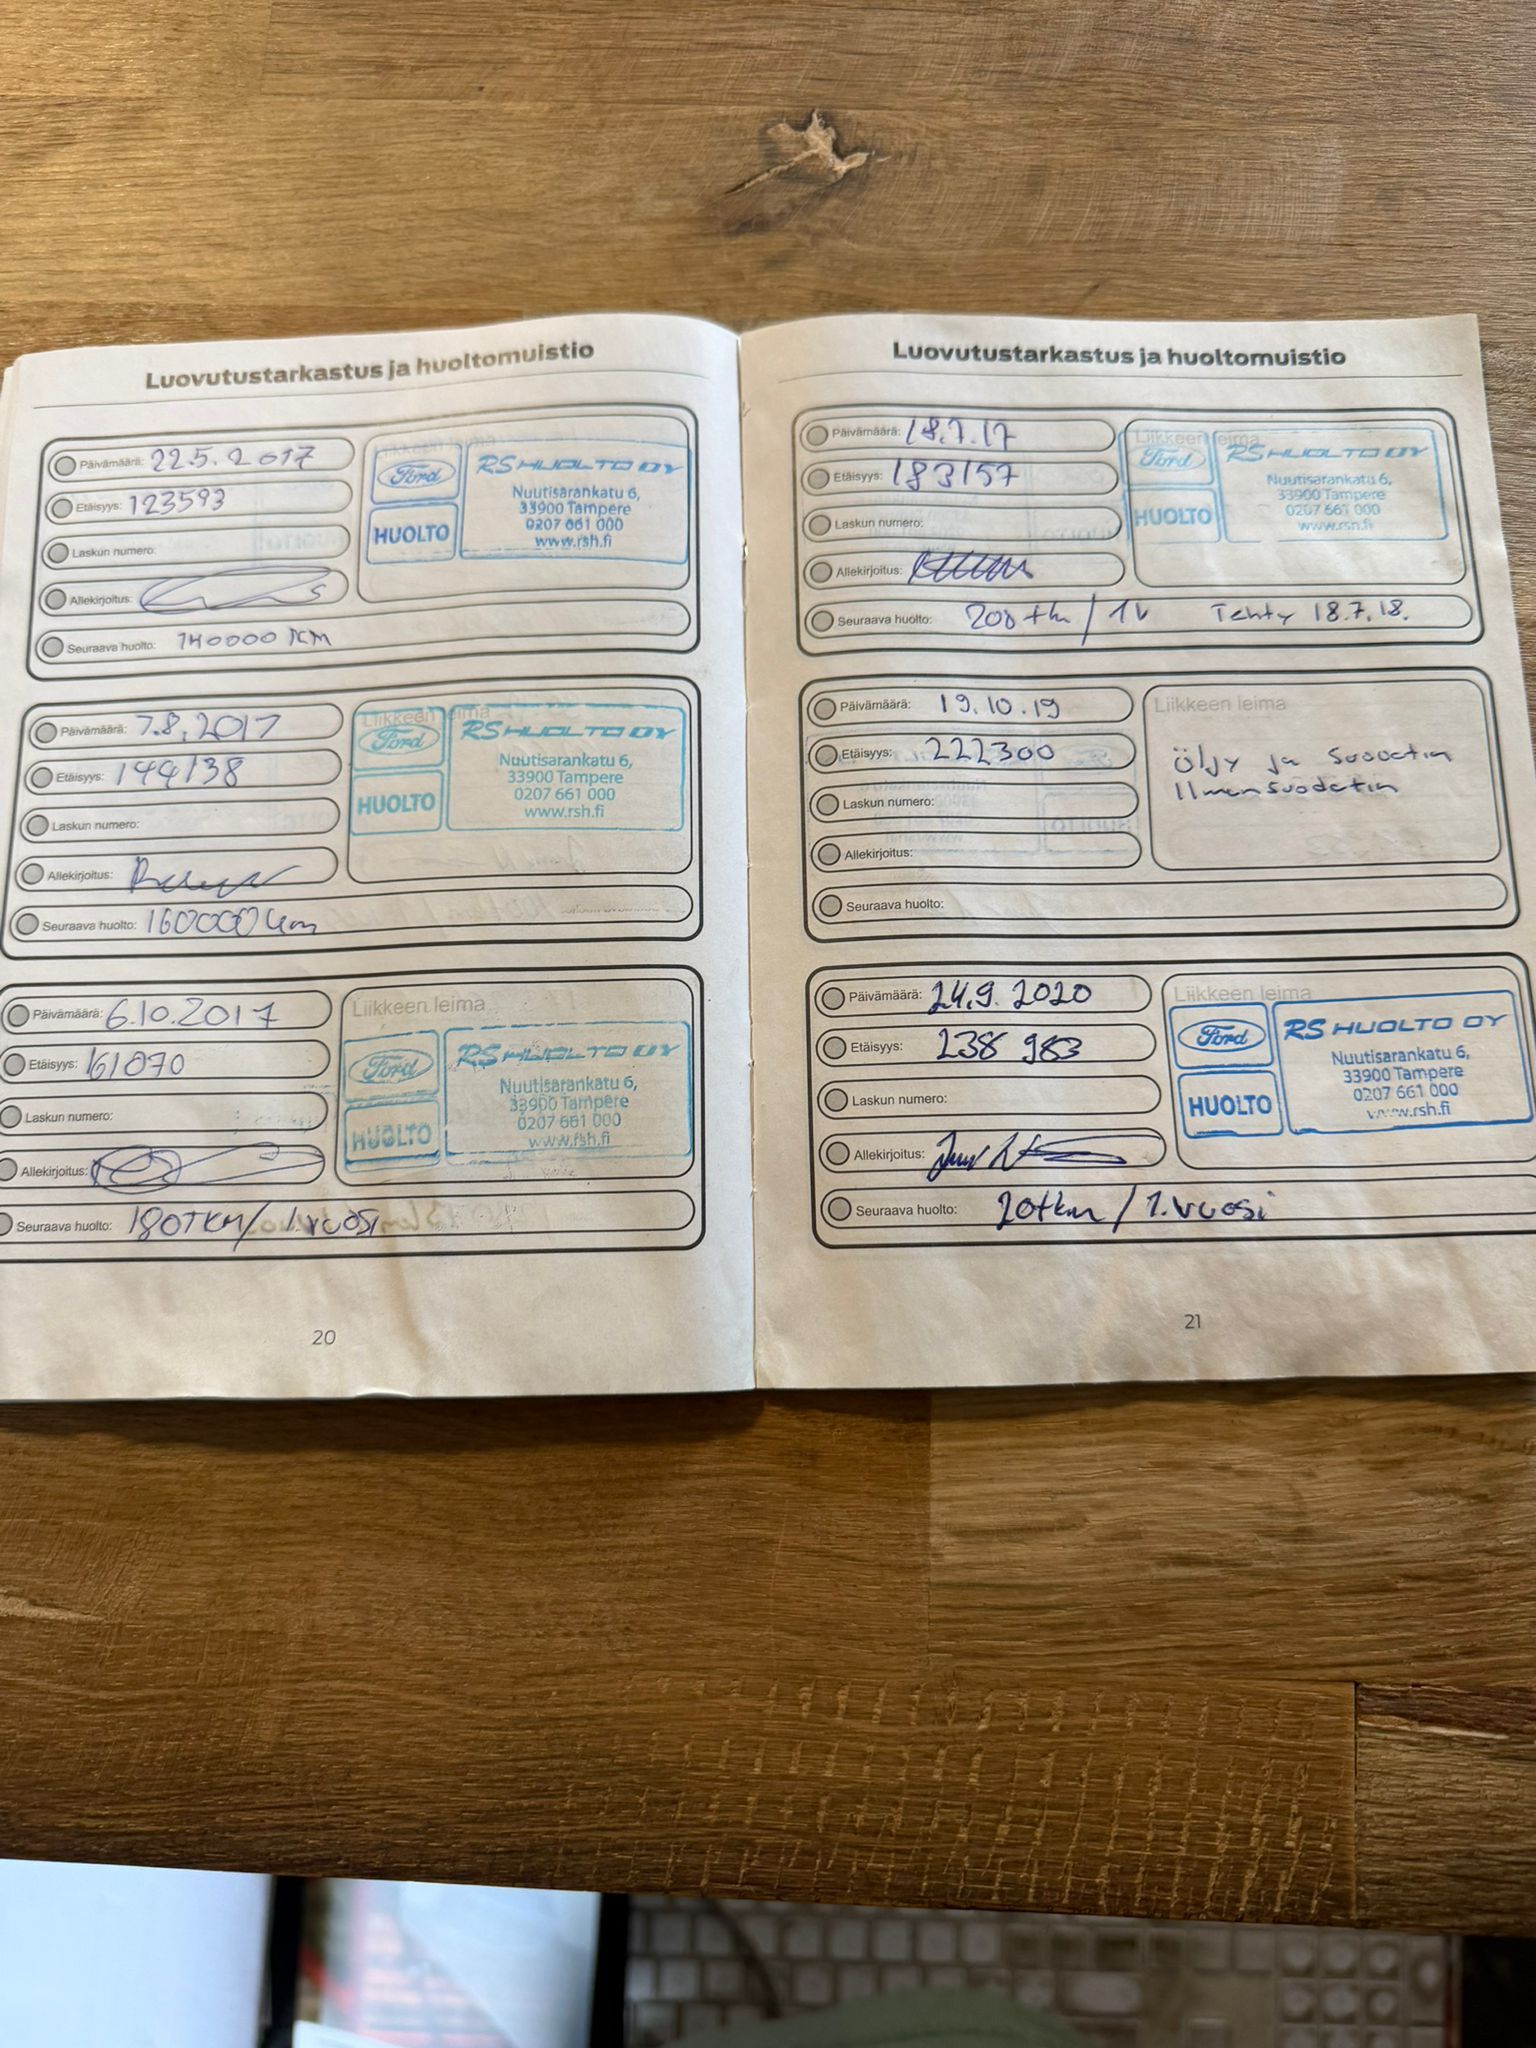 Luovutustarkastus ja huoltomuistio
Päivämäärä: 22.5.2017
Etäisyys: 123593
Laskun numero:
Allekirjoitus:
Seuraava huolto: 140000 KM
Liikkeen leima
Ford
HUOLTO
RS HUOLTO OY
Nuutisarankatu 6,
33900 Tampere
0207 661 000
www.rsh.fi
Päivämäärä: 7.8.2017
Etäisyys: 144138
Laskun numero:
Allekirjoitus:
Seuraava huolto: 160000 km
Liikkeen leima
Ford
HUOLTO
RS HUOLTO OY
Nuutisarankatu 6,
33900 Tampere
0207 661 000
www.rsh.fi
Päivämäärä: 6.10.2017
Etäisyys: 161070
Laskun numero:
Allekirjoitus:
Seuraava huolto: 180TKM/ 1.vuosi
Liikkeen leima
Ford
HUOLTO
RS HUOLTO OY
Nuutisarankatu 6,
33900 Tampere
0207 661 000
www.rsh.fi
20
Luovutustarkastus ja huoltomuistio
Päivämäärä: 18.7.17
Etäisyys: 183157
Laskun numero:
Allekirjoitus:
Seuraava huolto: 200 tkm / 1v Tehty 18.7.18.
Liikkeen leima
Ford
HUOLTO
RS HUOLTO OY
Nuutisarankatu 6,
33900 Tampere
0207 661 000
www.rsh.fi
Päivämäärä: 19.10.19
Etäisyys: 222300
Laskun numero:
Allekirjoitus:
Seuraava huolto:
Liikkeen leima
Öljy ja suodatin
Ilmansuodatin
Päivämäärä: 24.9.2020
Etäisyys: 238 983
Laskun numero:
Allekirjoitus:
Seuraava huolto: 20tkm / 1.vuosi
Liikkeen leima
Ford
HUOLTO
RS HUOLTO OY
Nuutisarankatu 6,
33900 Tampere
0207 661 000
www.rsh.fi
21